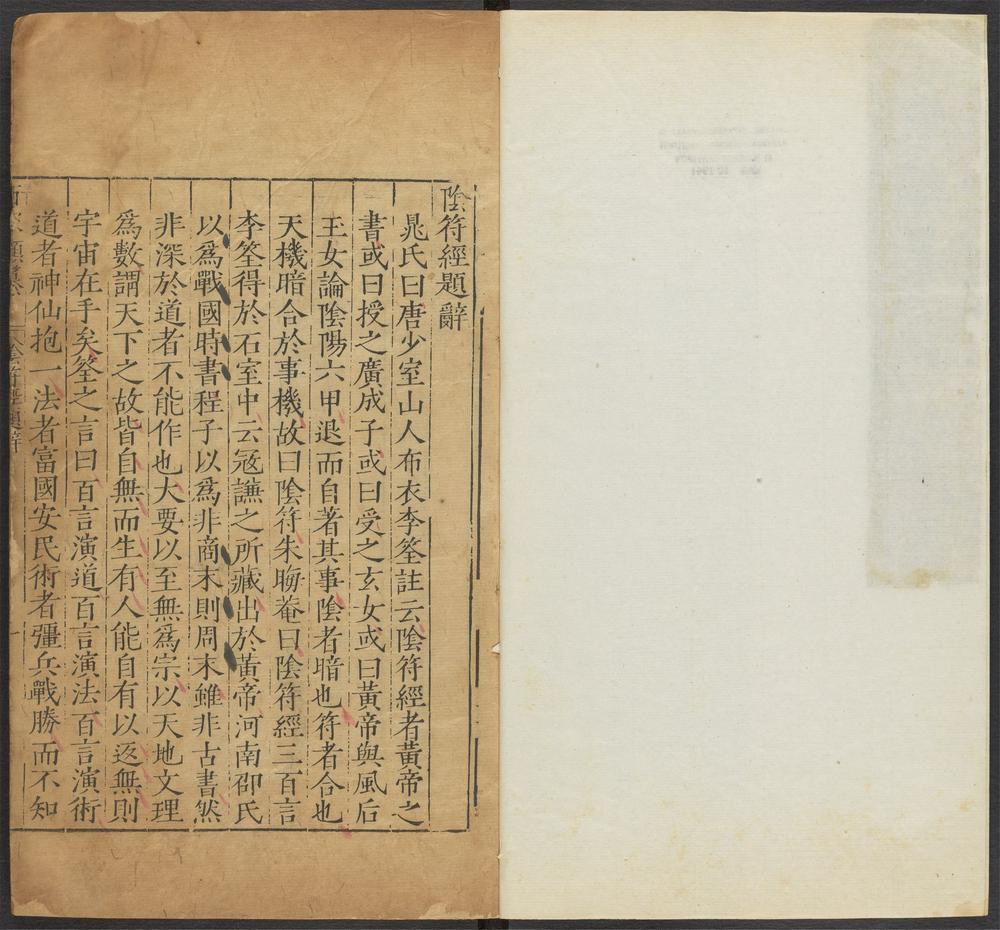 陰符經題辭
晁氏曰唐少室山人布衣李筌註云陰符經者黃帝之
書或曰授之廣成子或曰受之玄女或曰黃帝與風后
王女論陰陽六甲退而自著其事陰者暗也符者合也
天機暗合於事機故曰陰符朱晦菴曰陰符經三百言
李筌得於石室中云寇謙之所藏出於黃帝河南邵氏
以爲戰國時書程子以爲非商末則周末雖非古書然
非深於道者不能作也大要以至無爲宗以天地文理
爲數謂天下之故皆自無而生有人能自有以返無則
宇宙在手矣筌之言曰百言演道百言演法百言演術
道者神仙抱一法者富國安民術者彊兵戰勝而不知
陰符經題辭
一